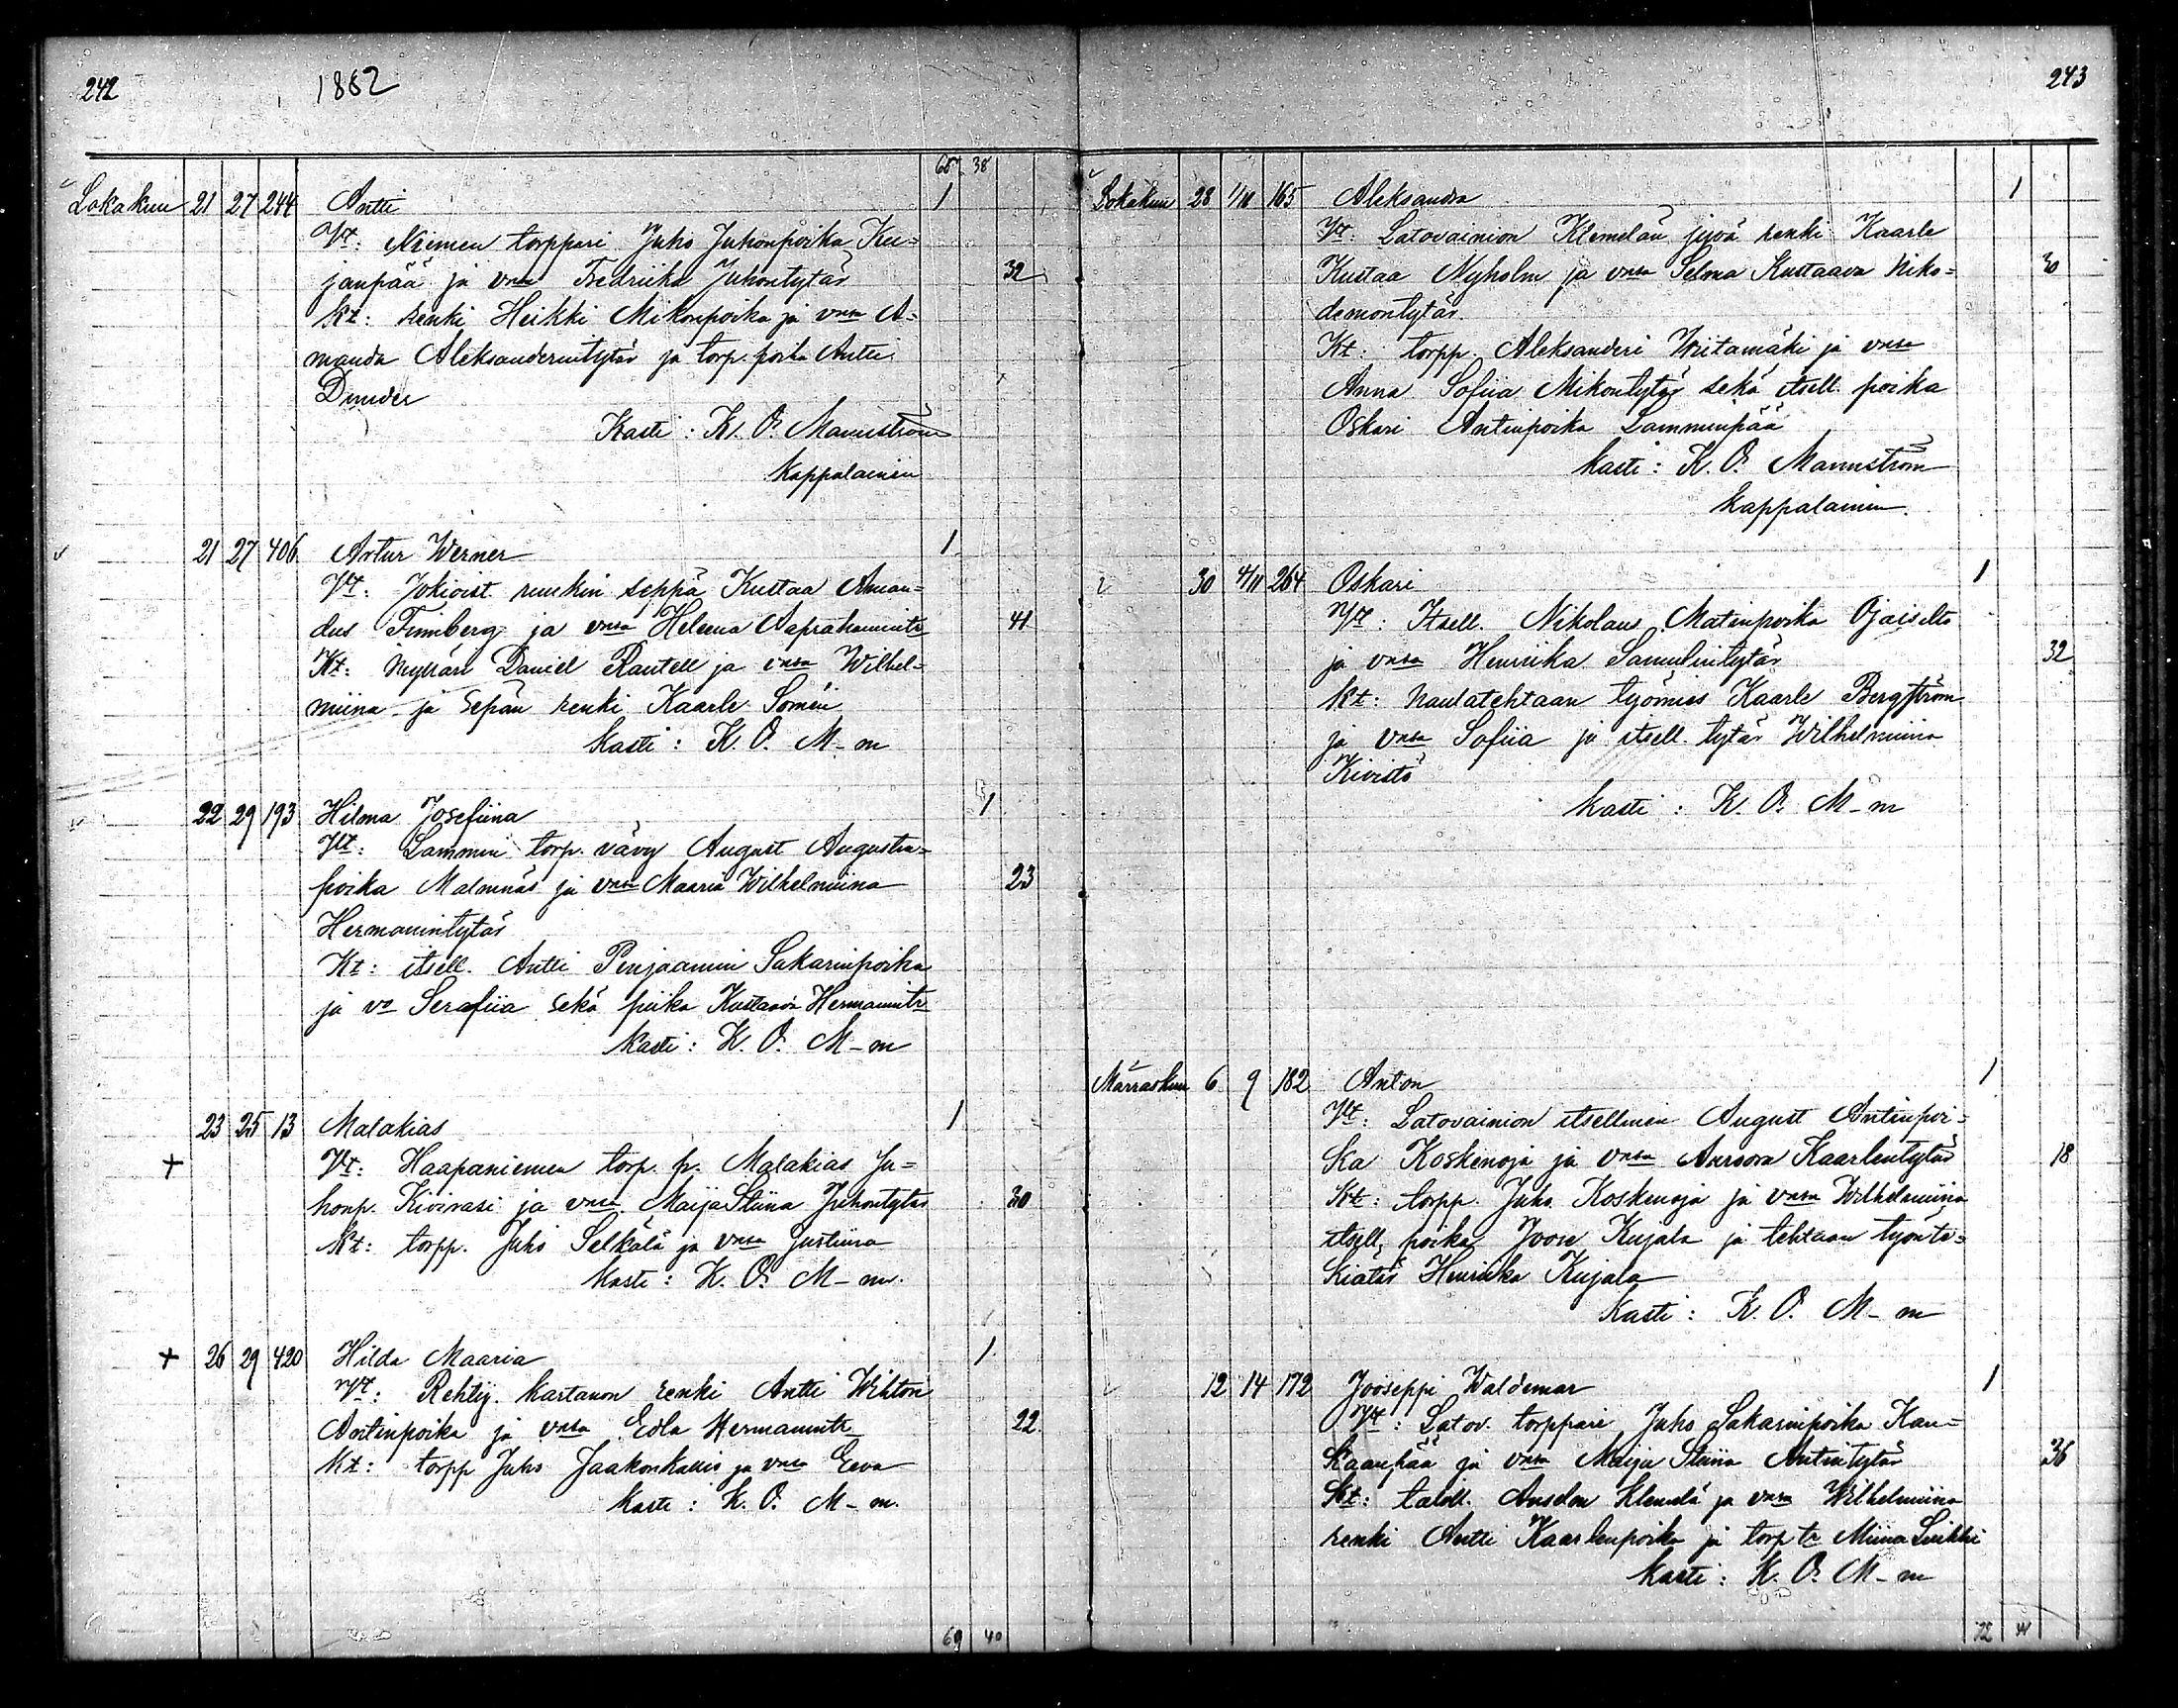 242
1882
65 38
Lokakuu 21 27 244 Antti 1
Vt: Niemen torppari Juho Juhonpoika Ku=
janpää ja vmsa Fredriika Juhontytär 32
Kt: renki Heikki Mikonpoika ja vmsa A=
manda Aleksanderintytär ja torp. poika Antti
Dunder
Kasti: K. O. Mannström
Kappalainen
21 27 406 Artur Werner 1
Vt: Jokioist. ruukin seppä Kustaa Aman=
dus Finnberg ja vmsa Helena Aaprahamintr 41
Kt: Mylläri Daniel Rautell ja vmsa Wilhel=
miina ja Sepän renki Kaarle Somén
Kasti: K. O. M-m
22 29 193 Hilma Josefiina 1
Vt: Lammin torp. vävy August Augustin=
poika Malmnäs ja vmsa Maaria Wilhelmiina 23
Hermannintytär
Kt: itsell. Antti Penjaamin Sakarinpoika
ja vo Serafiia sekä piika Kustaava Hermannintr
Kasti: K. O. M-m
23 25 13 Malakias 1
+ Vt: Haapaniemen torp. p. Malakias Ju=
honp. Kivivasi ja vmsa Maija Stiina Juhontytär 30
Kt: torpp. Juho Selkälä ja vmsa Justiina
Kasti: K. O. M-m.
+ 26 29 420 Hilda Maaria 1
Vt: Rehtij. Kartanon renki Antti Wihtori
Antinpoika ja vmsa Edla Hermannintr 22.
Kt: torpp Juho Jaakonkallio ja vmsa Eeva
Kasti: K. O. M-m.
69 40
243
Lokakuu 28 1/11 165 Aleksandra 1
Vt: Latovainion Klemelän jyvä renki Kaarle
Kustaa Nyholm ja vmsa Selma Kustaava Niko= 30
demontytär.
Kt: torpp. Aleksanderi Wiitamäki ja vmsa
Anna Sofiia Mikontytär sekä itsell. poika
Oskari Antinpoika Lamminpää
Kasti: K. O. Mannström
Kappalainen.
30 4/11 264 Oskari 1
Vt: Itsell. Nikolaus Matinpoika Ojaiselta
ja vmsa Henriika Samulintytär 32
Kt: Naulatehtaan työmies Kaarle Bergström
ja vmsa Sofiia ja itsell. tytär Wilhelmiina
Kivistö
Kasti: K. O. M-m
Marraskuu 6 9 182 Anton 1
Vt: Latovainion itsellinen August Antinpoi=
ka Koskenoja ja vmsa Auroora Kaarlentytär 18
Kt: torpp. Juho Koskenoja ja vmsa Wilhelmiina,
itsell. poika Joose Kujala ja tehtaan työnte=
kiätär Henriika Kujala
Kasti: K. O. M-m
12 14 172 Jooseppi Waldemar 1
Vt: Latov. torppari Juho Sakarinpoika Kan=
kaanpää ja vmsa Maija Stiina Antintytär 36
Kt: taloll. Anselm Klemelä ja vmsa Wilhelmiina
renki Antti Kaarlenpoika ja torp tr Miina Suikki
Kasti: K. O. M-m
72 41